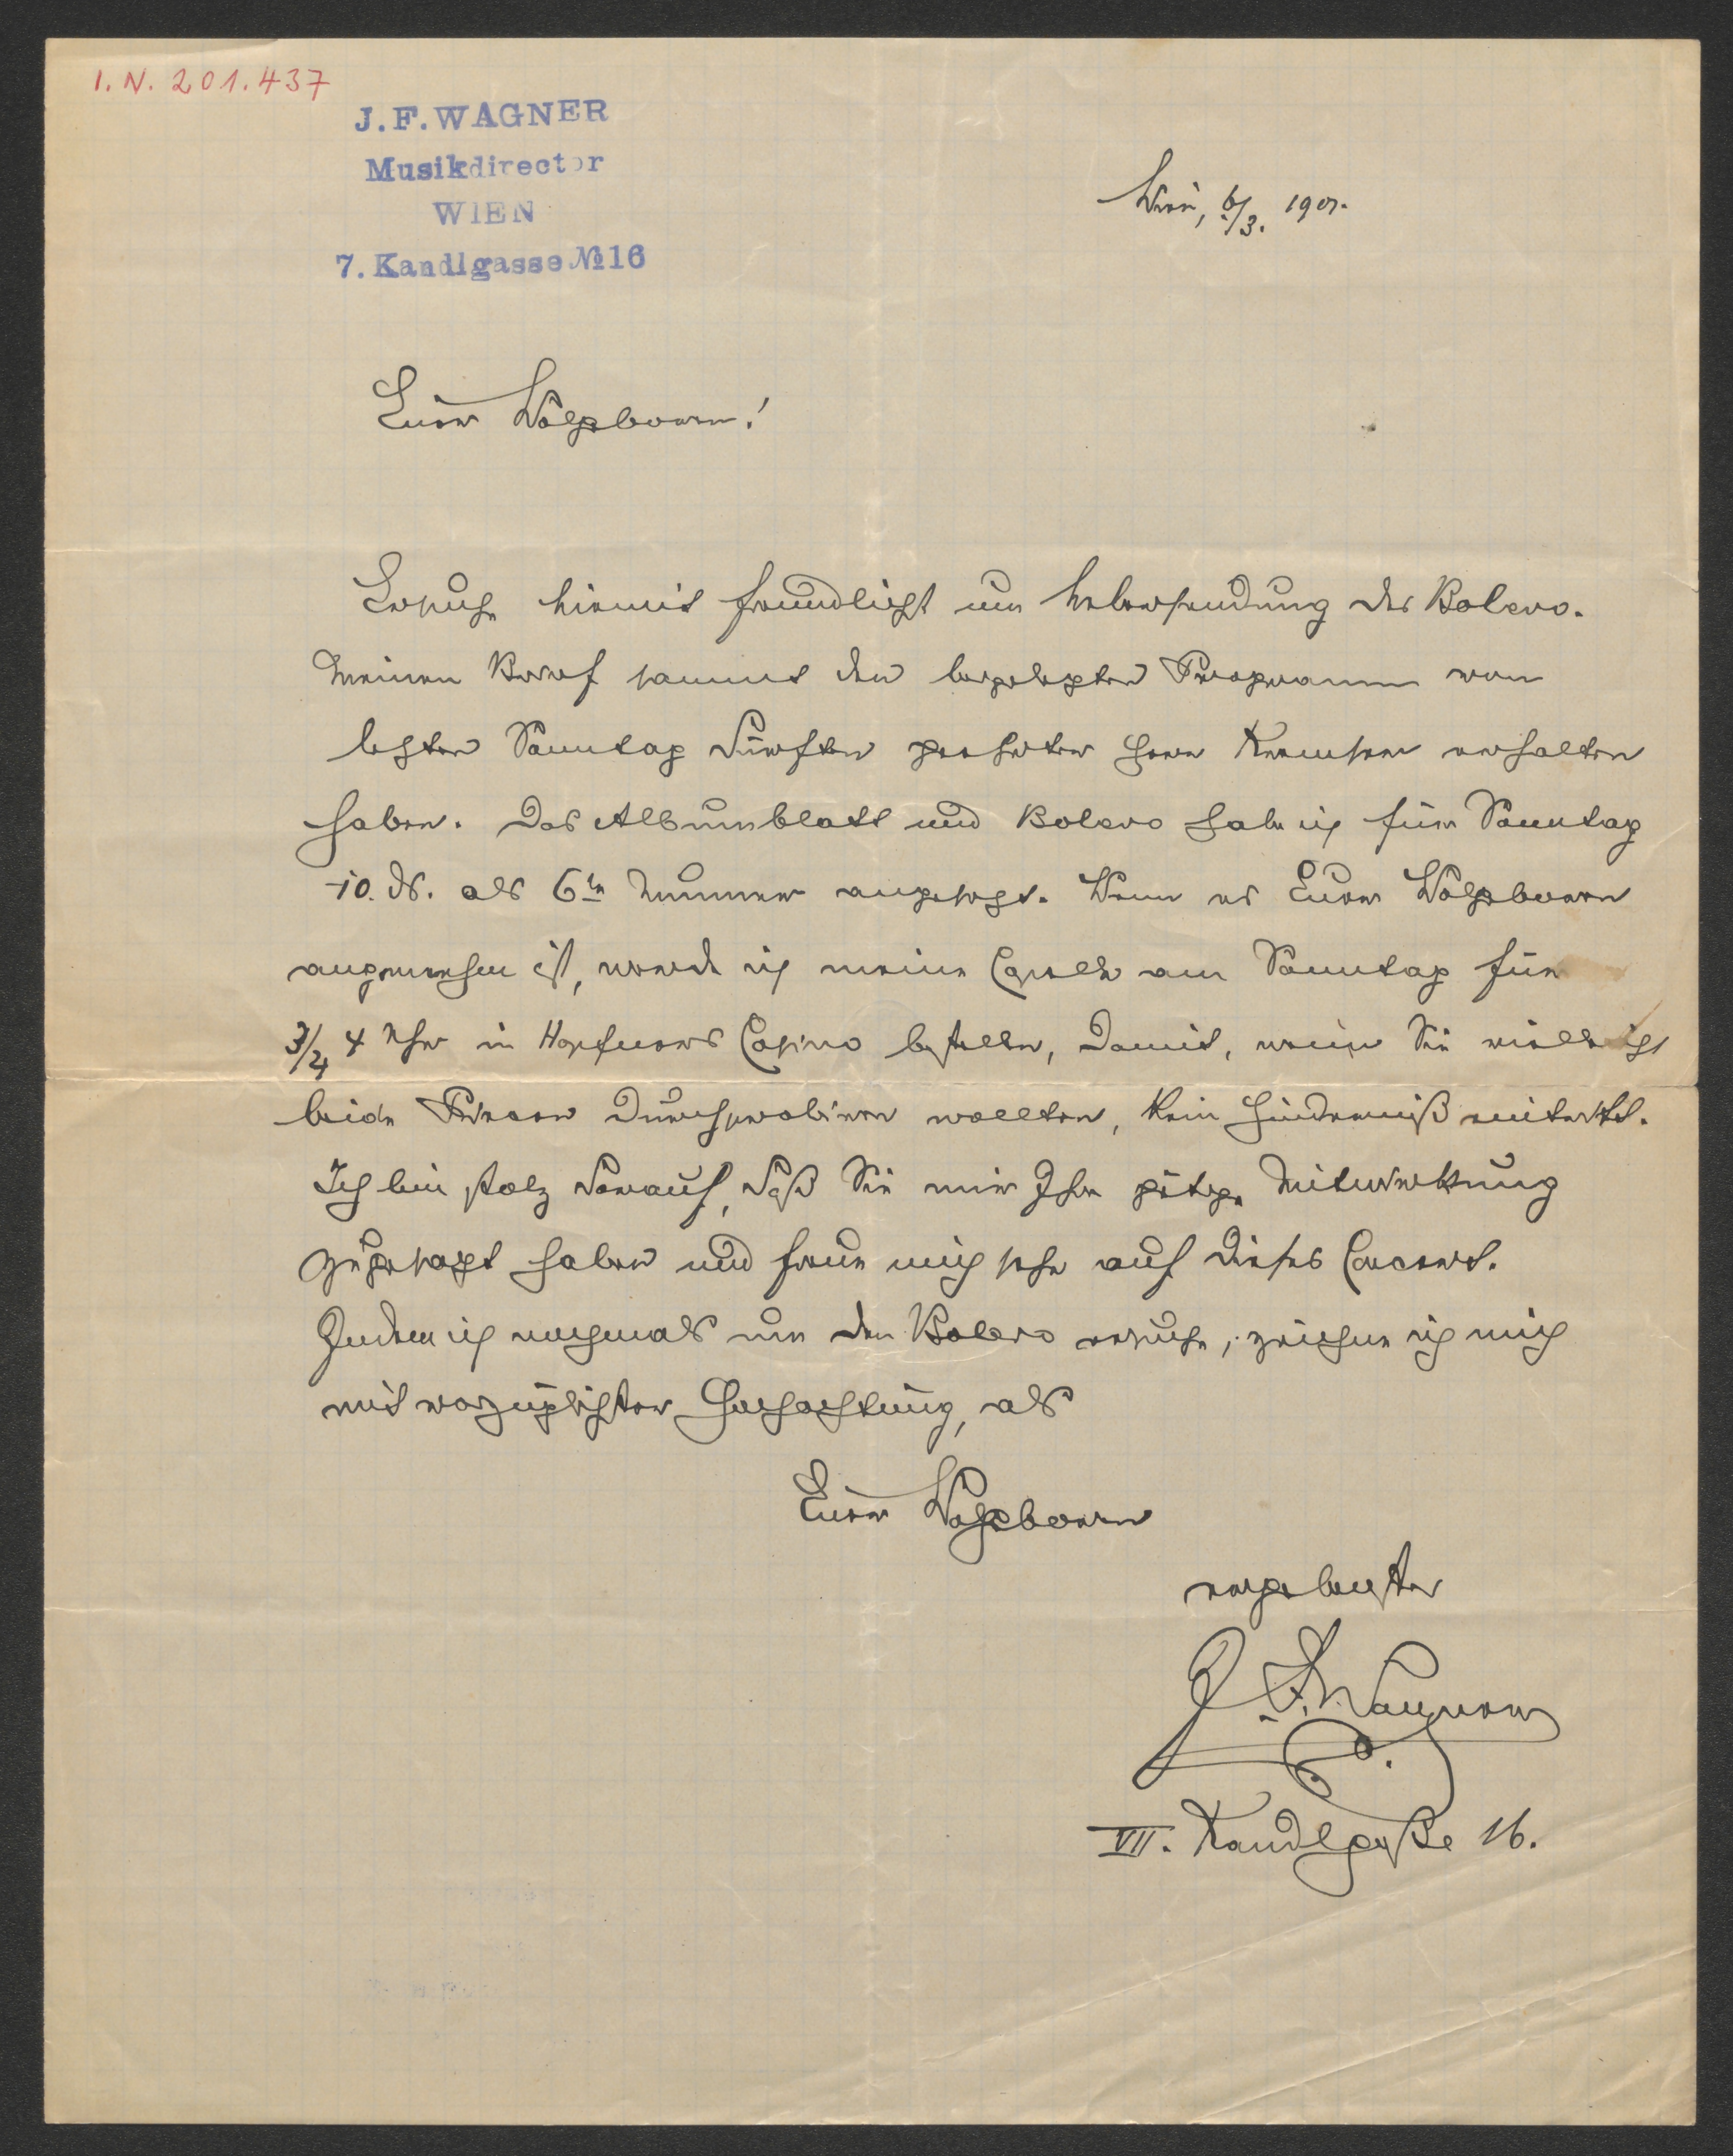 I.N. 201.437
J. F. WAGNER
Musikdirector
WIEN
7. Kandlgasse №16
Wien, 6/3. 1901.
Euer Wolgeboren!
Ersuche hiemit freundlichst um Uebersendung des Bolero.
Meinen Brief sammt den beigelegten Programm vom
letzten Sonntag dürften geehrter Herr Kremser erhalten
haben. Das Albumblatt und Bolero habe ich für Sonntag
10. ds. als 6te Nummer angesetzt. Wenn es Euer Wolgeboren
angenehm ist, werde ich meine Capelle am Sonntag für
3/4 4 Uhr in Hopfners Casino bestellen, damit, wenn Sie vielleicht
beide Piecen durchprobiren wollten, kein Hinderniß eintritt.
Ich bin stolz darauf, daß Sie mir Ihre gütige Mitwirkung
zugesagt haben und freue mich sehr auf dieses Concert.
Indem ich nochmals um den Bolero ersuche, zeichne ich mich
mit vorzüglichster Hochachtung, als
Euer Wolgeboren
ergebenster
J. F. Wagner
VII. Kandlgaße 16.